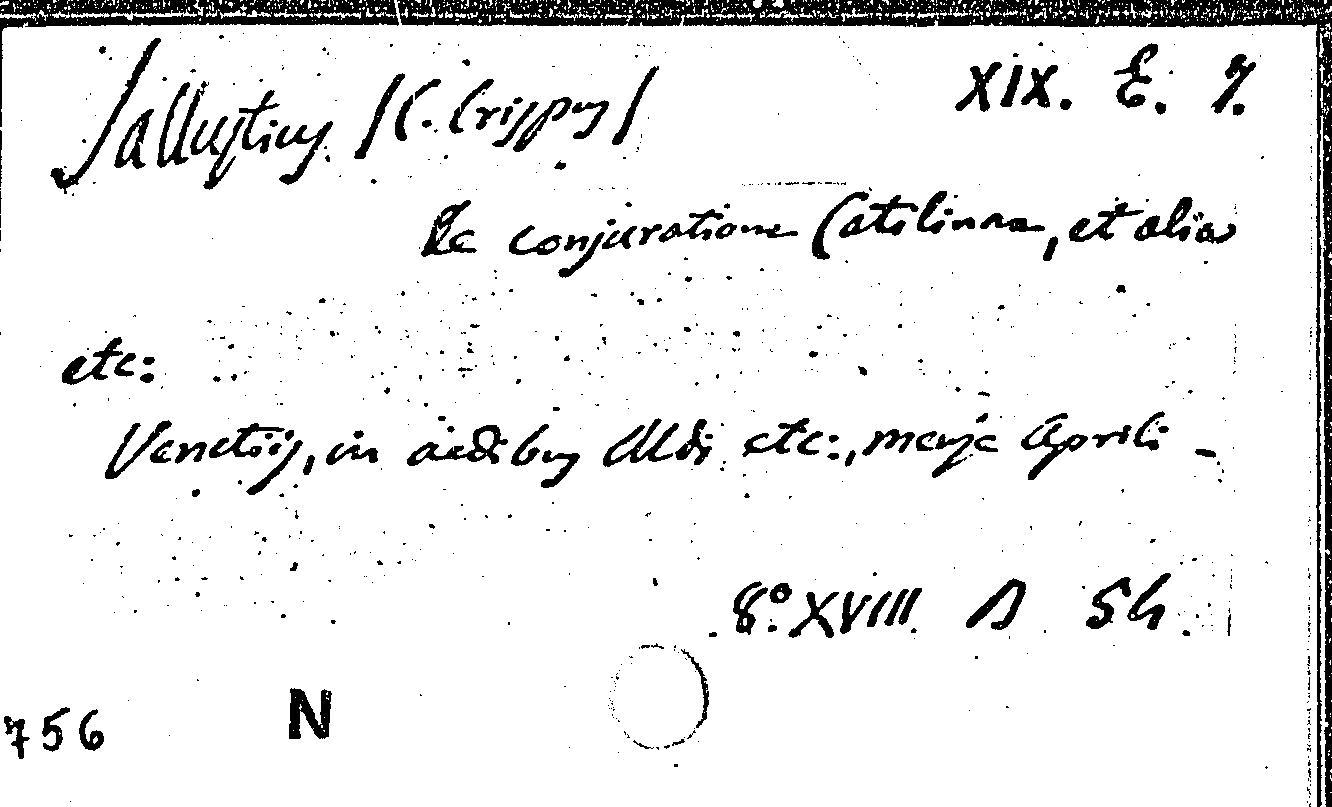 Sallustius /C. Crispus/ XIX. E. 7.
De conjuratione Catilinae, et alia
etc:
Venetiis, in aedibus Aldi etc:, mense Aprili -
8° XVIII D 54
756 N